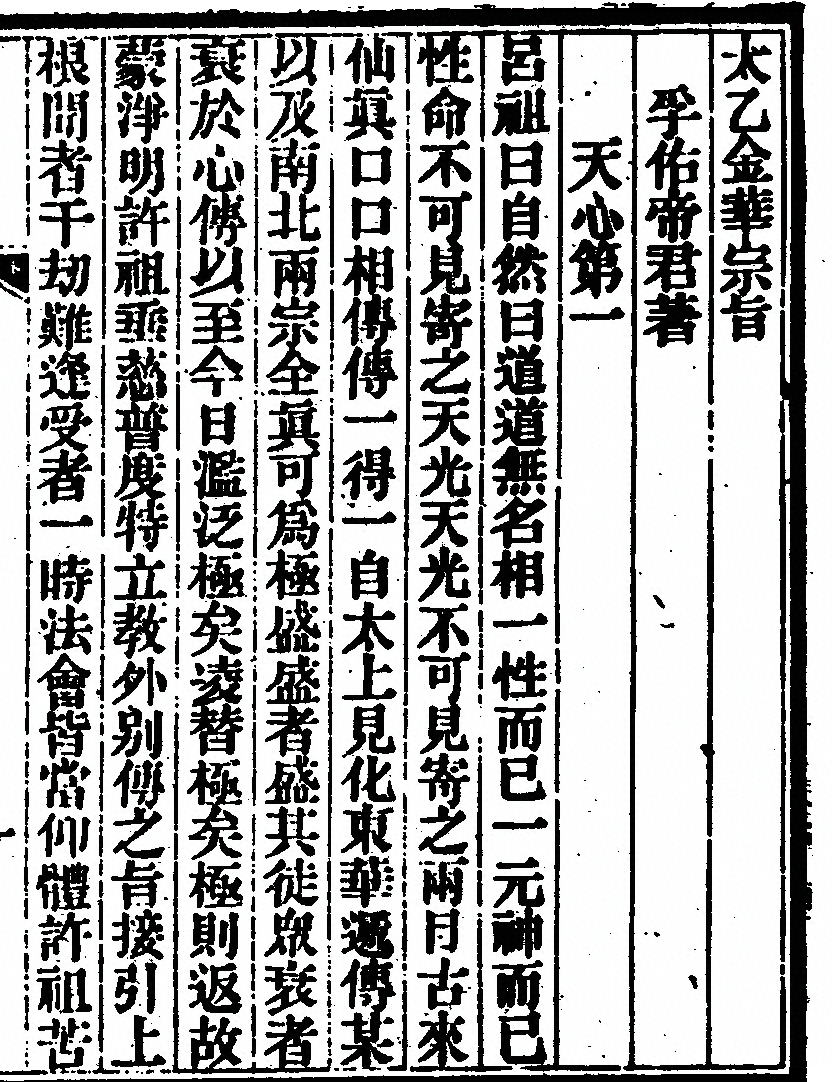 太乙金華宗旨
孚佑帝君著
天心第一
呂祖曰自然曰道道無名相一性而已一元神而已
性命不可見寄之天光天光不可見寄之兩目古來
仙眞口口相傳傳一得一自太上見化東華遞傳某
以及南北兩宗全眞可爲極盛盛者盛其徒眾衰者
衰於心傳以至今日濫泛極矣凌替極矣極則返故
蒙淨明許祖垂慈普度特立教外別傳之旨接引上
根聞者千劫難逢受者一時法會皆當仰體許祖苦